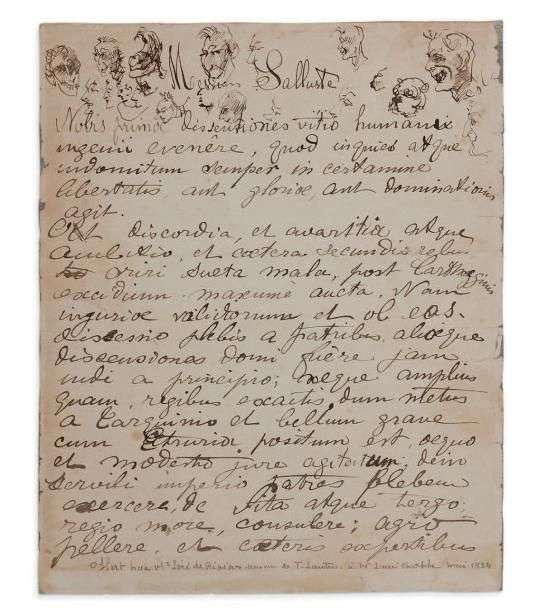 Salluste
Nobis primæ dissentiones vitio humani
ingenii evenere, quod inquies atque
indomitum semper in certamine
libertatis aut gloriæ, aut dominationis
agit.
discordia, et avaritia atque
ambitio, et cætera secundis rebus
oriri sueta mala, post Carthaginis
excidium maxume aucta. Nam
injuriæ validiorum et ob eas
discessio plebis a patribus, aliæque
dissensiones domi fuere jam
indi a principio; neque amplius
quam, regibus exactis, dum metus
a Tarquinio et bellum grave
cum Etruria positum est, æquo
et modesto jure agitatum, dein
servili imperio patres plebem
exercere, de vita atque tergo
regio more, consulere; agro
pellere, et cæteris expertibus
1924